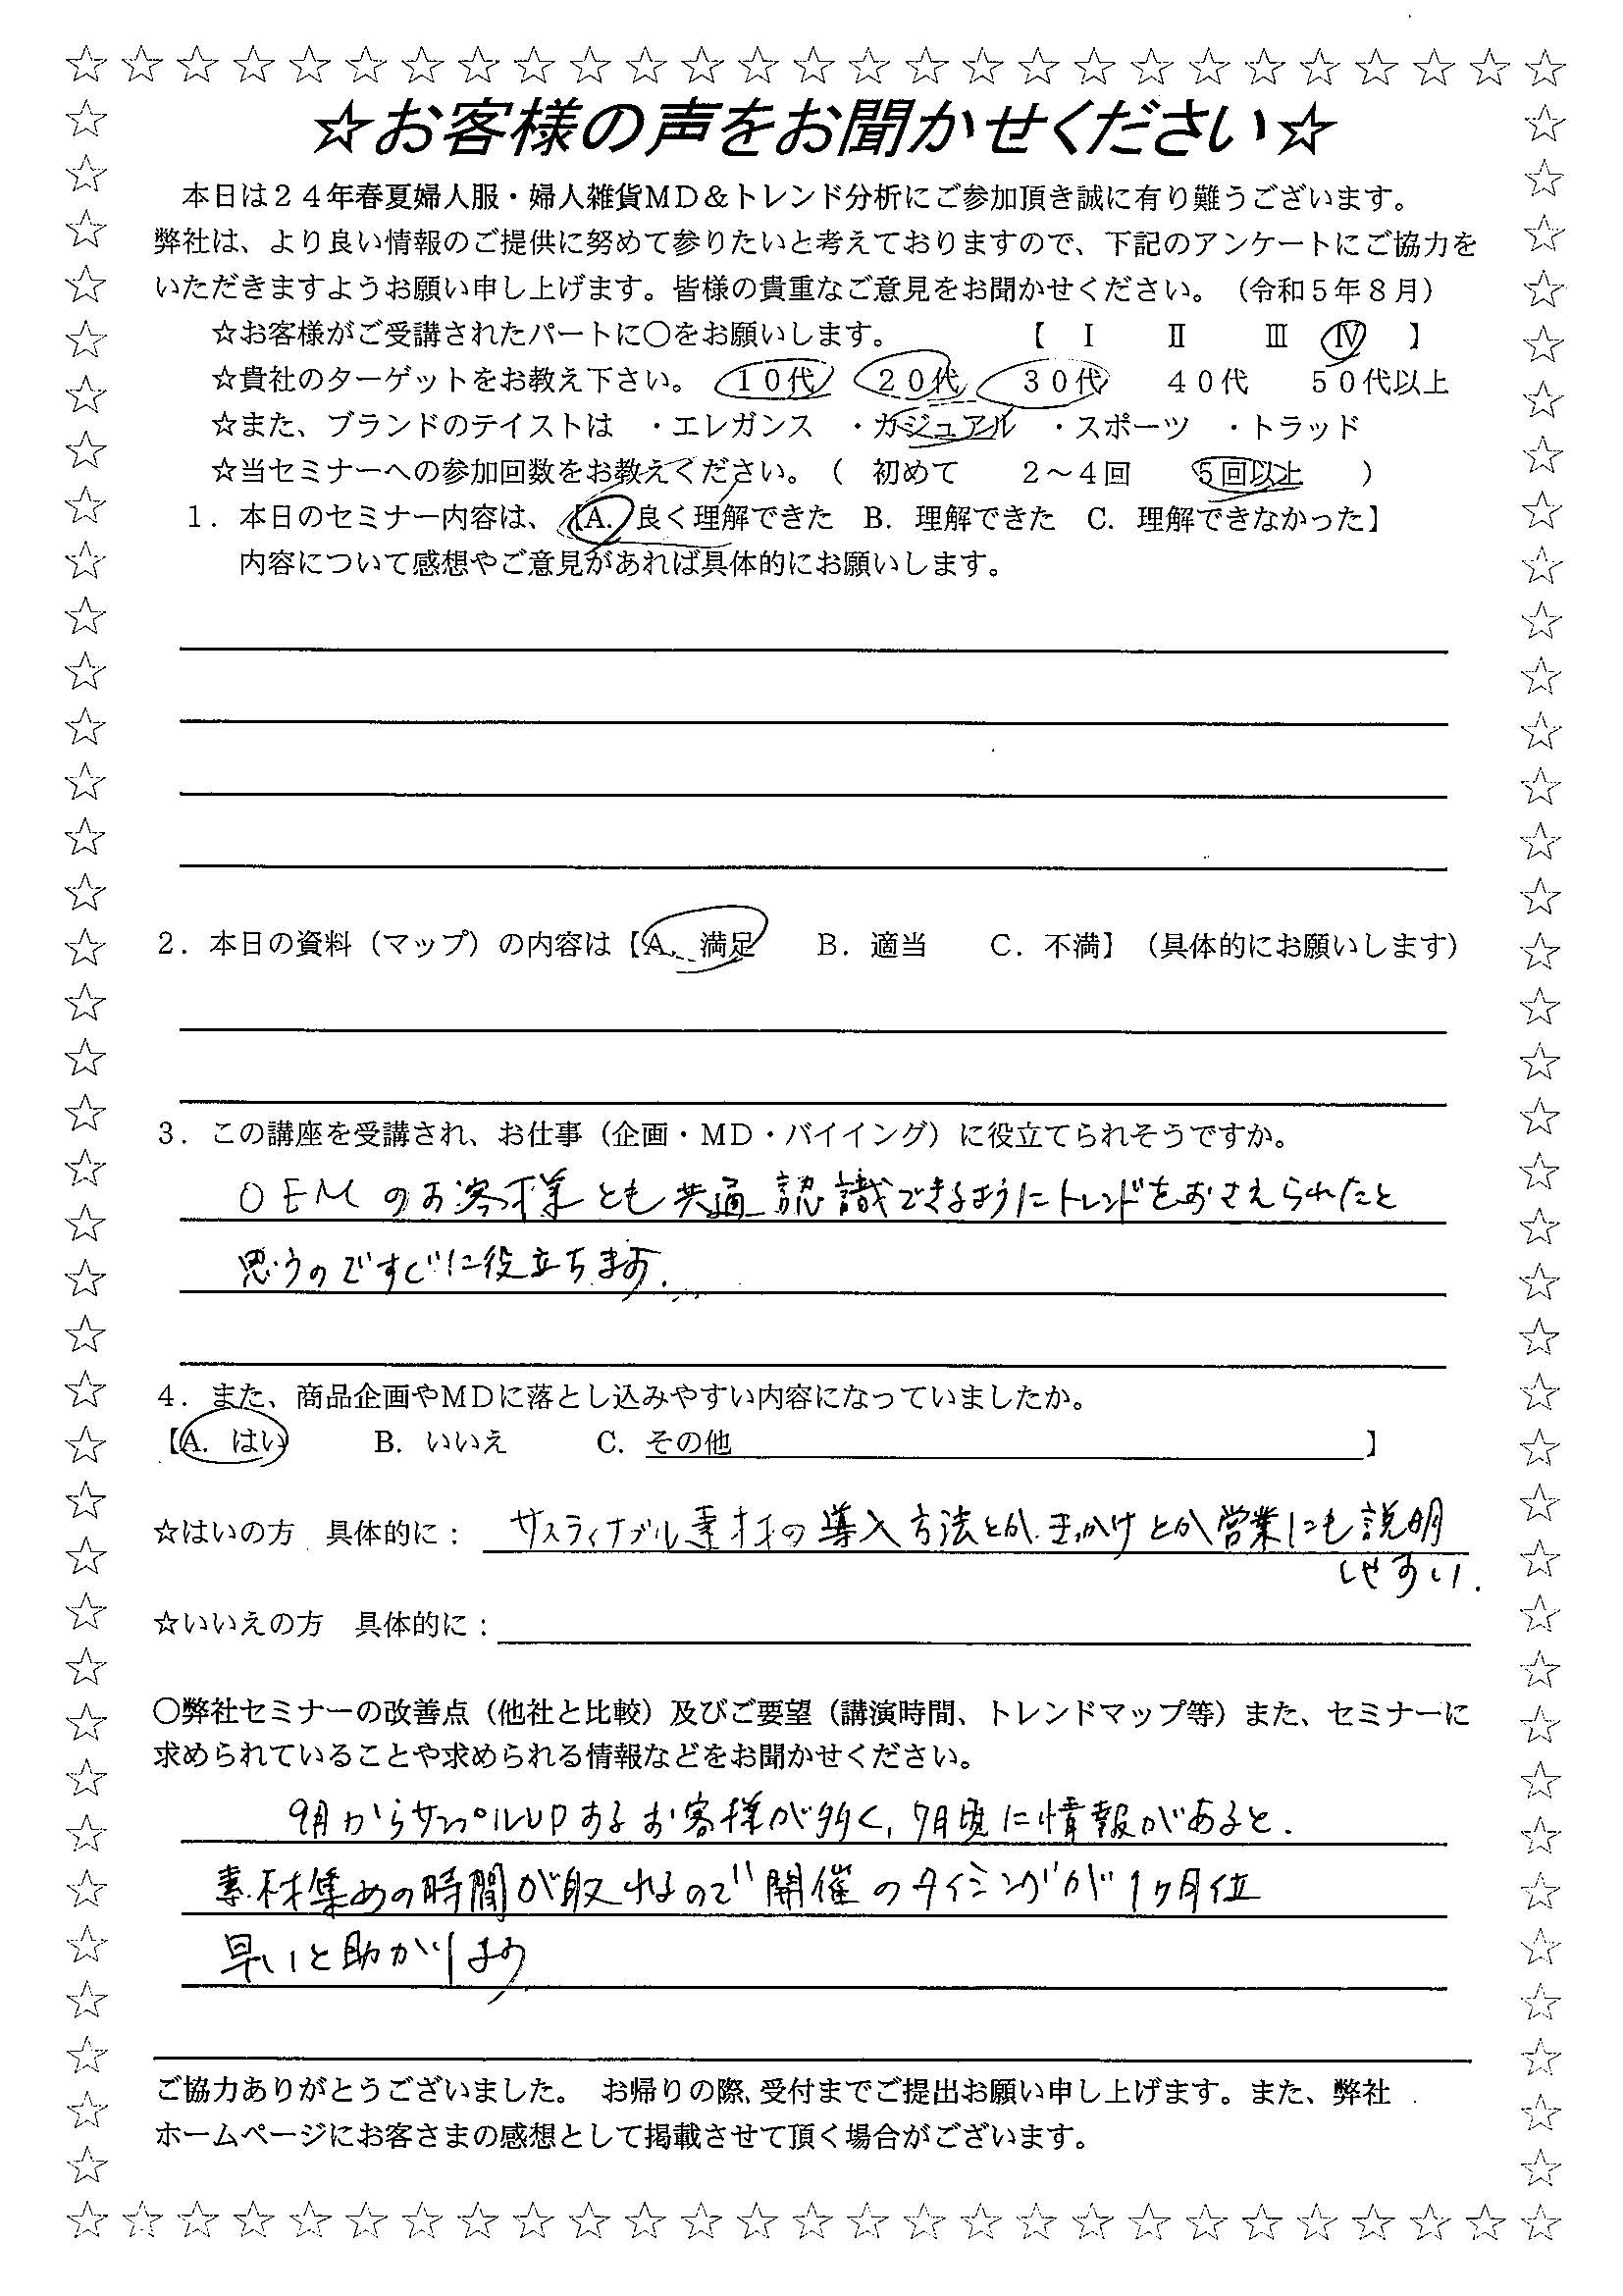 ☆お客様の声をお聞かせください☆
本日は２４年春夏婦人服・婦人雑貨MD＆トレンド分析にご参加頂き誠に有り難うございます。
弊社は、より良い情報のご提供に努めて参りたいと考えておりますので、下記のアンケートにご協力を
いただきますようお願い申し上げます。皆様の貴重なご意見をお聞かせください。（令和５年８月）
☆お客様がご受講されたパートに〇をお願いします。　【　Ⅰ　Ⅱ　Ⅲ　Ⅳ　】
☆貴社のターゲットをお教え下さい。　１０代　２０代　３０代　４０代　５０代以上
☆また、ブランドのテイストは　・エレガンス　・カジュアル　・スポーツ　・トラッド
☆当セミナーへの参加回数をお教えください。（　初めて　２～４回　５回以上　）
１．本日のセミナー内容は、【A．良く理解できた　B．理解できた　C．理解できなかった】
内容について感想やご意見があれば具体的にお願いします。
２．本日の資料（マップ）の内容は【A．満足　B．適当　C．不満】（具体的にお願いします）
３．この講座を受講され、お仕事（企画・MD・バイイング）に役立てられそうですか。
OEMのお客様とも共通認識できるようにトレンドをおさえられたと
思うのですぐに役立ちます.
４．また、商品企画やMDに落とし込みやすい内容になっていましたか。
【A．はい　B．いいえ　C．その他　】
☆はいの方　具体的に：サスティナブル素材の導入方法とか、かけとか営業にも説明
しやすい.
☆いいえの方　具体的に：
〇弊社セミナーの改善点（他社と比較）及びご要望（講演時間、トレンドマップ等）また、セミナーに
求められていることや求められる情報などをお聞かせください。
9月からサンプルUPするお客様が多く, 7月頃に情報があると.
素材集めの時間が取れるので開催のタイミングが1ヶ月位
早いと助かります
ご協力ありがとうございました。　お帰りの際､受付までご提出お願い申し上げます。また、弊社
ホームページにお客さまの感想として掲載させて頂く場合がございます。